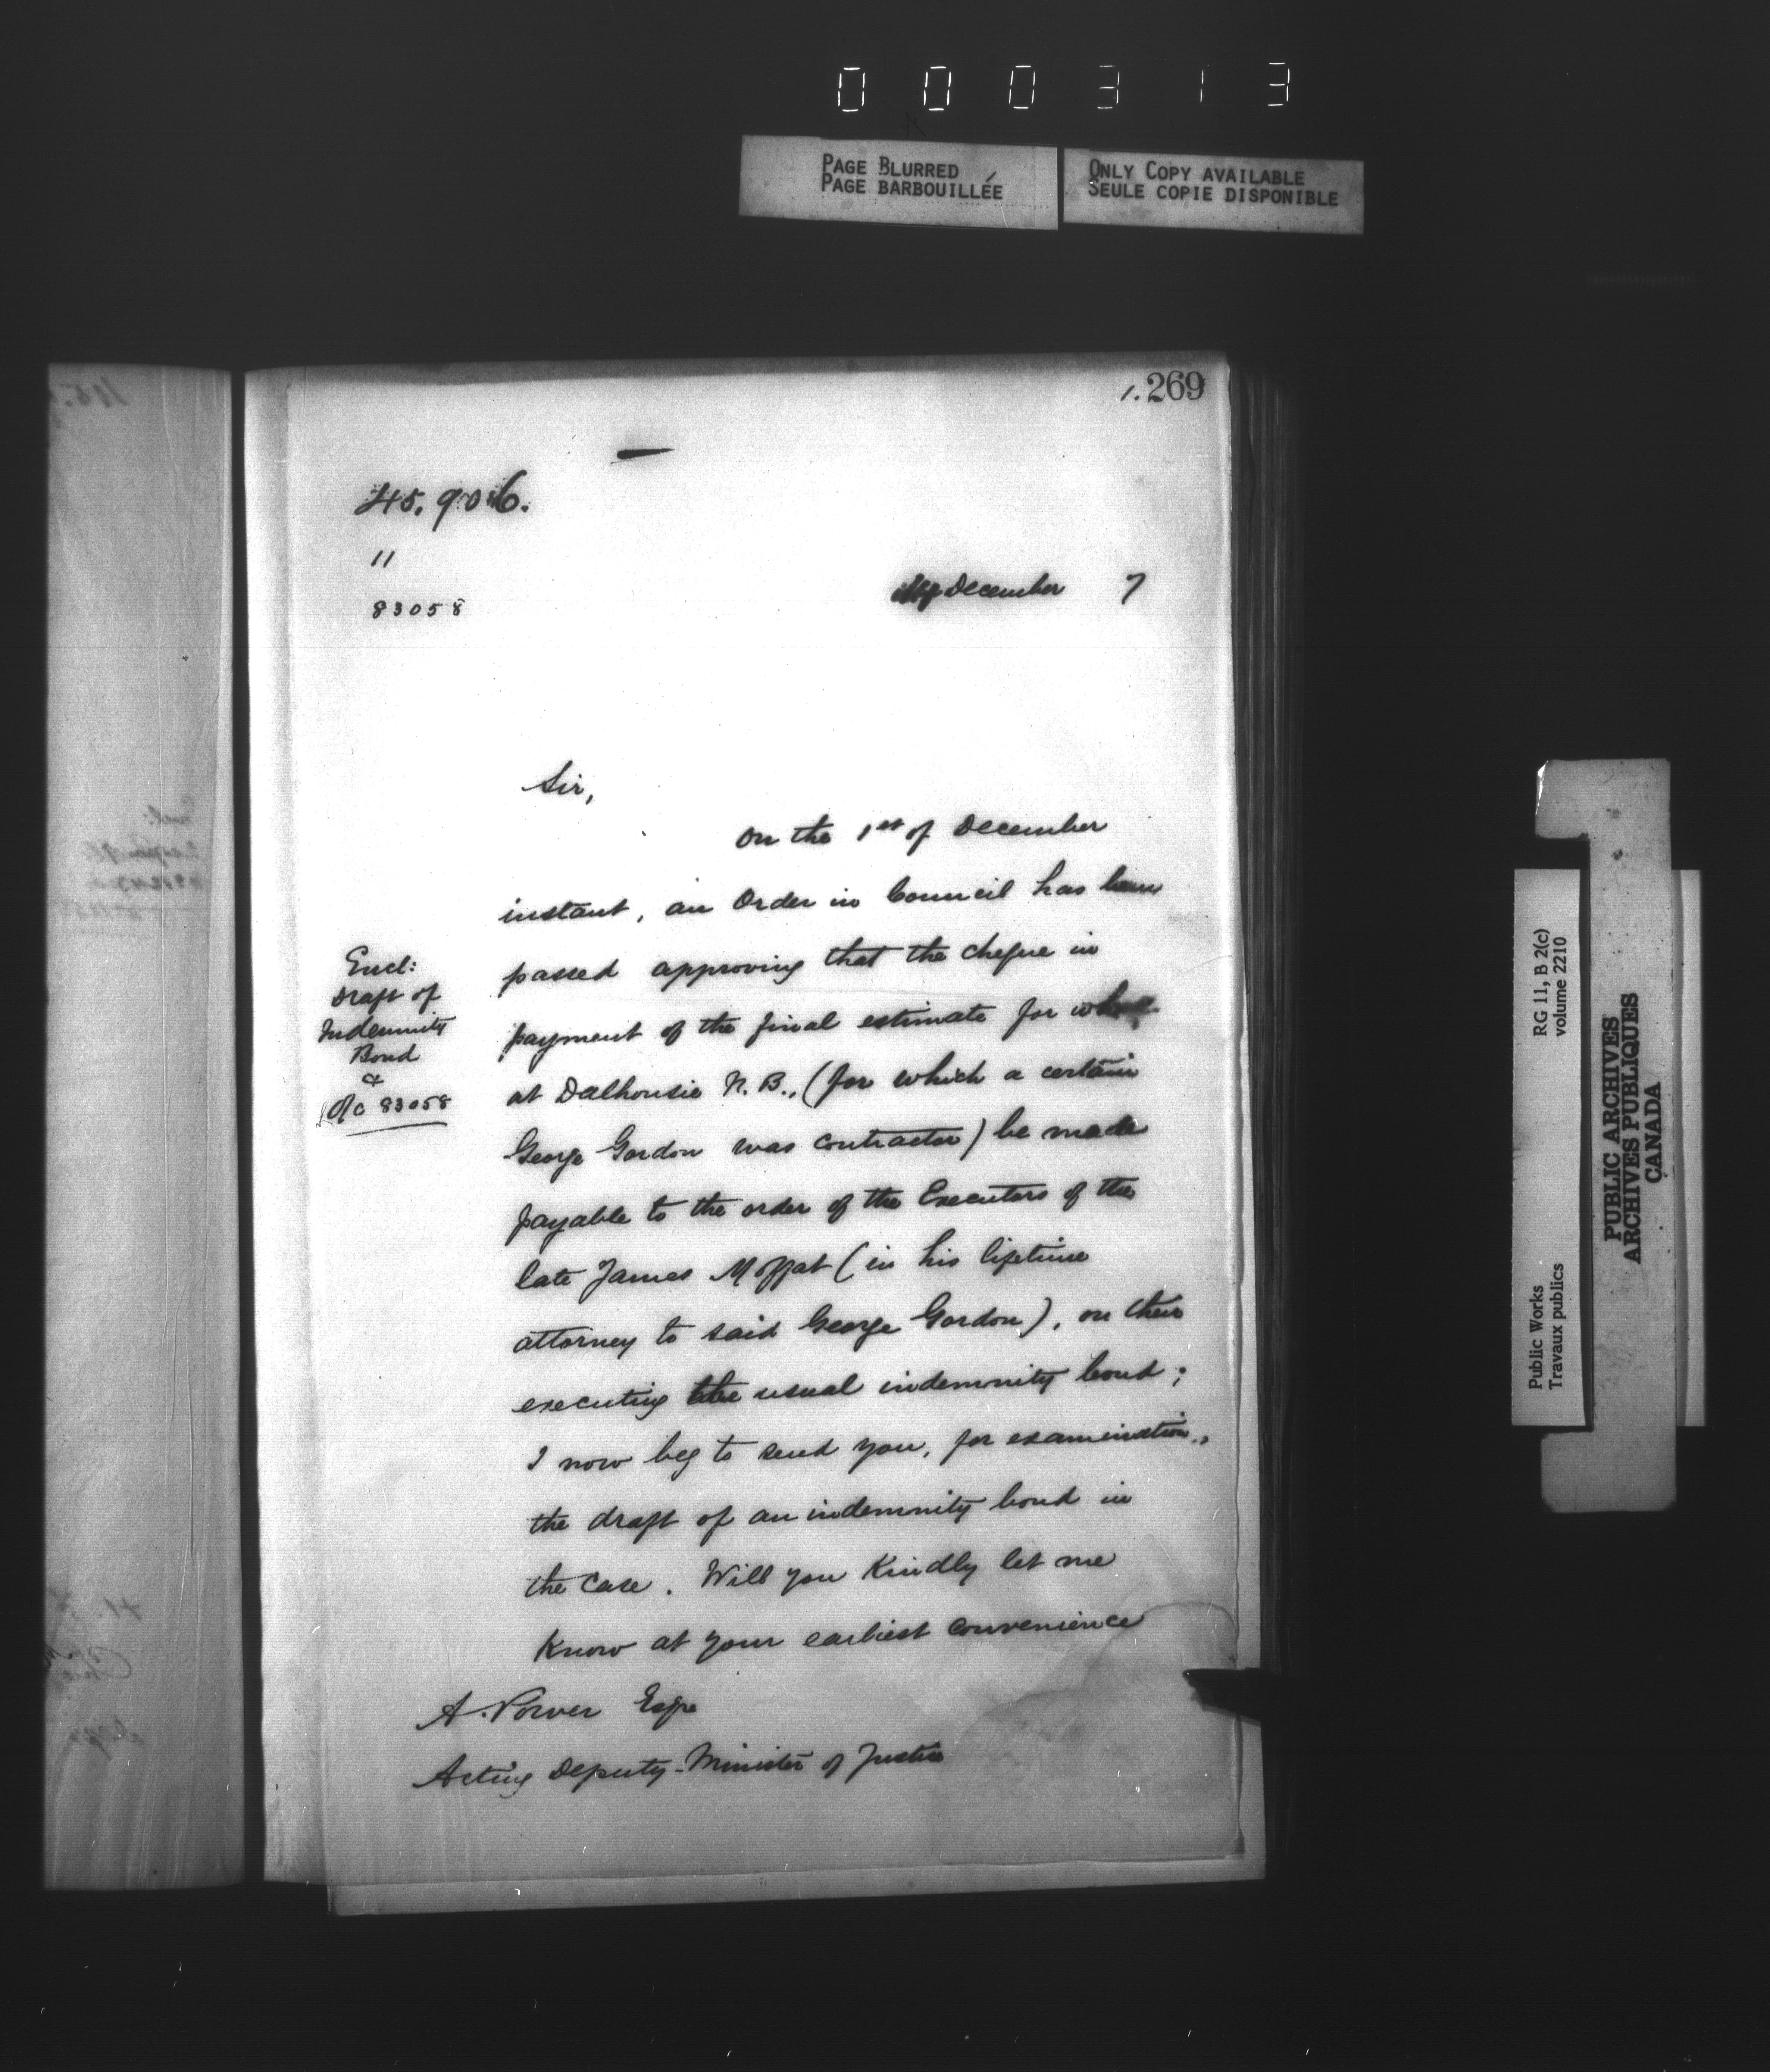 000313
PAGE BLURRED
PAGE BARBOUILLÉE
ONLY COPY AVAILABLE
SEULE COPIE DISPONIBLE
1.269
45.906.
11
83058
December 7
Sir,
On the 1st of December
instant, an Order in Council has been
passed approving that the cheque in
payment of the final estimate for
at Dalhousie N.B., (for which a certain
George Gordon was contractor) be made
payable to the order of the Executors of the
late James Moffat (in his lifetime
attorney to said George Gordon), on their
executing the usual indemnity bond;
I now beg to send you, for examination,
the draft of an indemnity bond in
the case. Will you Kindly let me
Know at your earliest convenience
Encl:
Draft of
Indemnity
Bond
&
O/c 83058
A. Power Esqre
Acting Deputy-Minister of Justice
RG 11, B 2(c)
volume 2210
Public Works
Travaux publics
PUBLIC ARCHIVES
ARCHIVES PUBLIQUES
CANADA